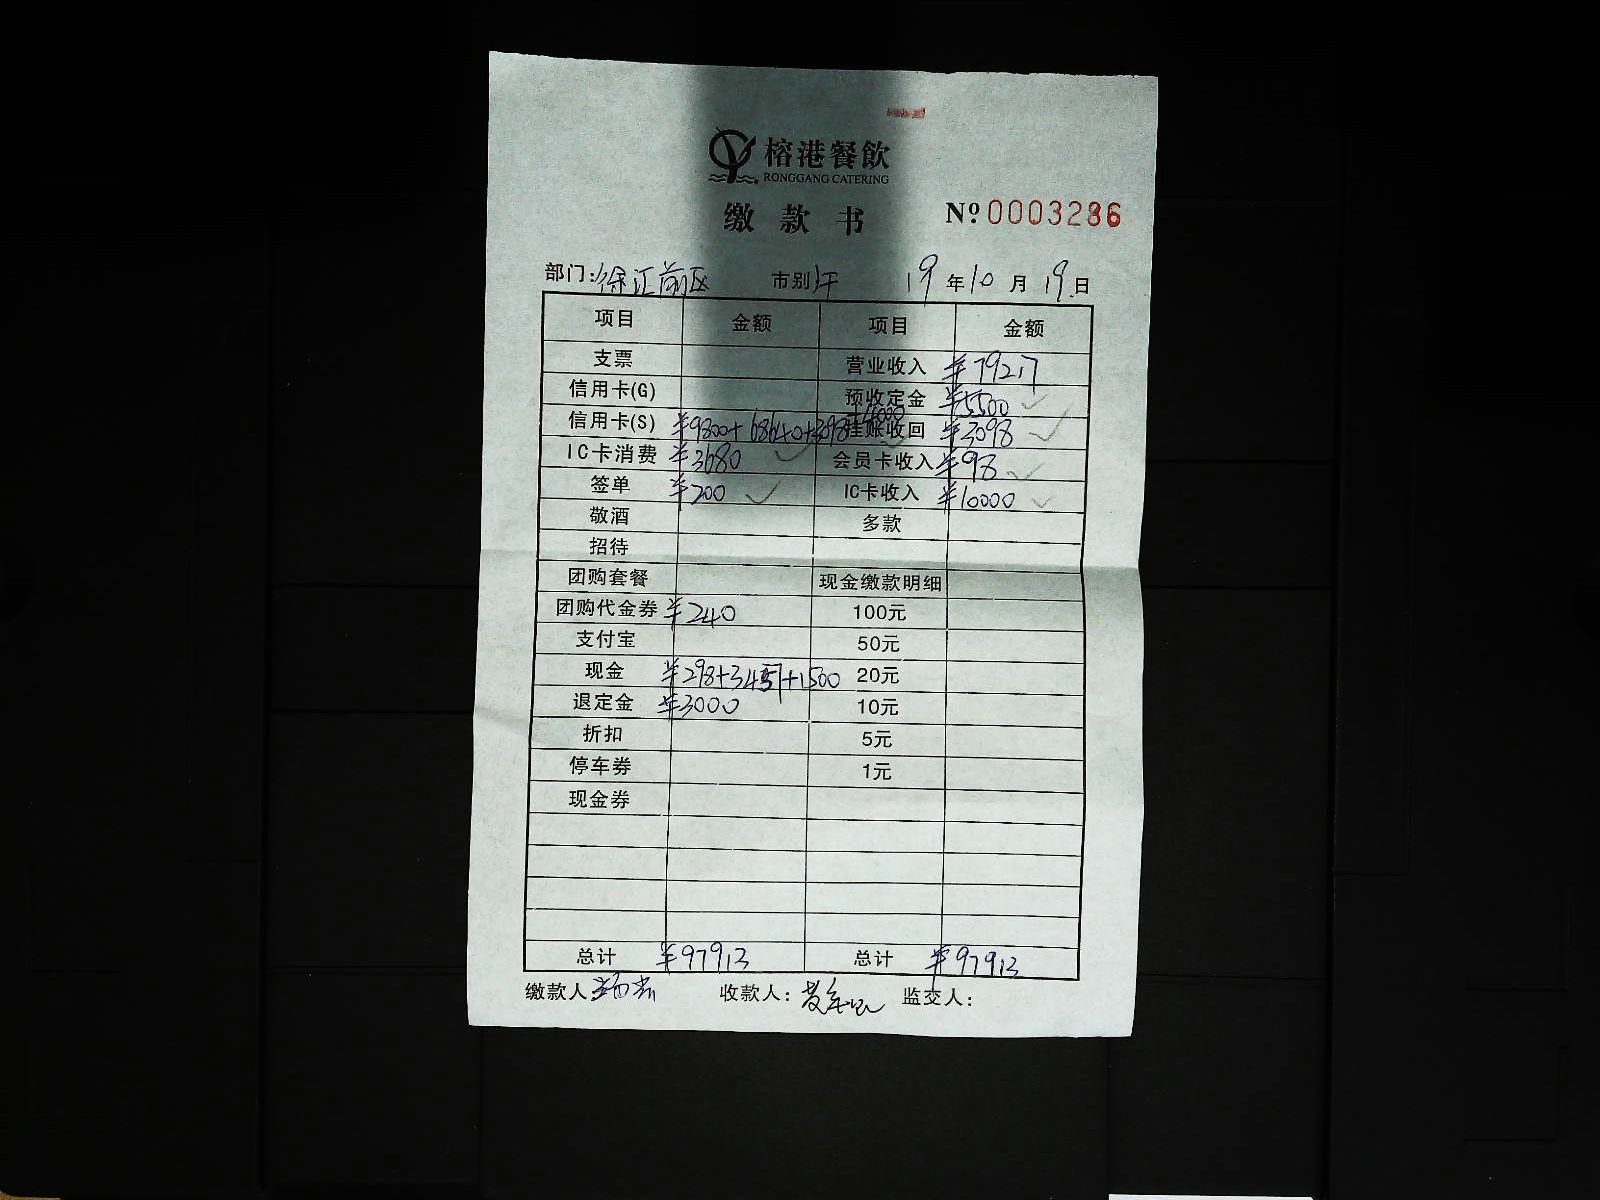 榕港餐飲
RONGGANG CATERING
缴款书 Nº 0003286
部门:徐汇前区 市别 午 19年10月19日
项目 金额 项目 金额
支票 营业收入 ¥79217
信用卡(G) 预收定金 ¥5500
信用卡(S) ¥9800+68640+3098+4000 挂账收回 ¥3098
IC卡消费 ¥3680 会员卡收入 ¥98
签单 ¥200 IC卡收入 ¥10000
敬酒 多款
招待
团购套餐 现金缴款明细
团购代金券 ¥240 100元
支付宝 50元
现金 ¥298+3457+1500 20元
退定金 ¥3000 10元
折扣 5元
停车券 1元
现金券
总计 ¥97913 总计 ¥97913
缴款人: 收款人: 监交人: